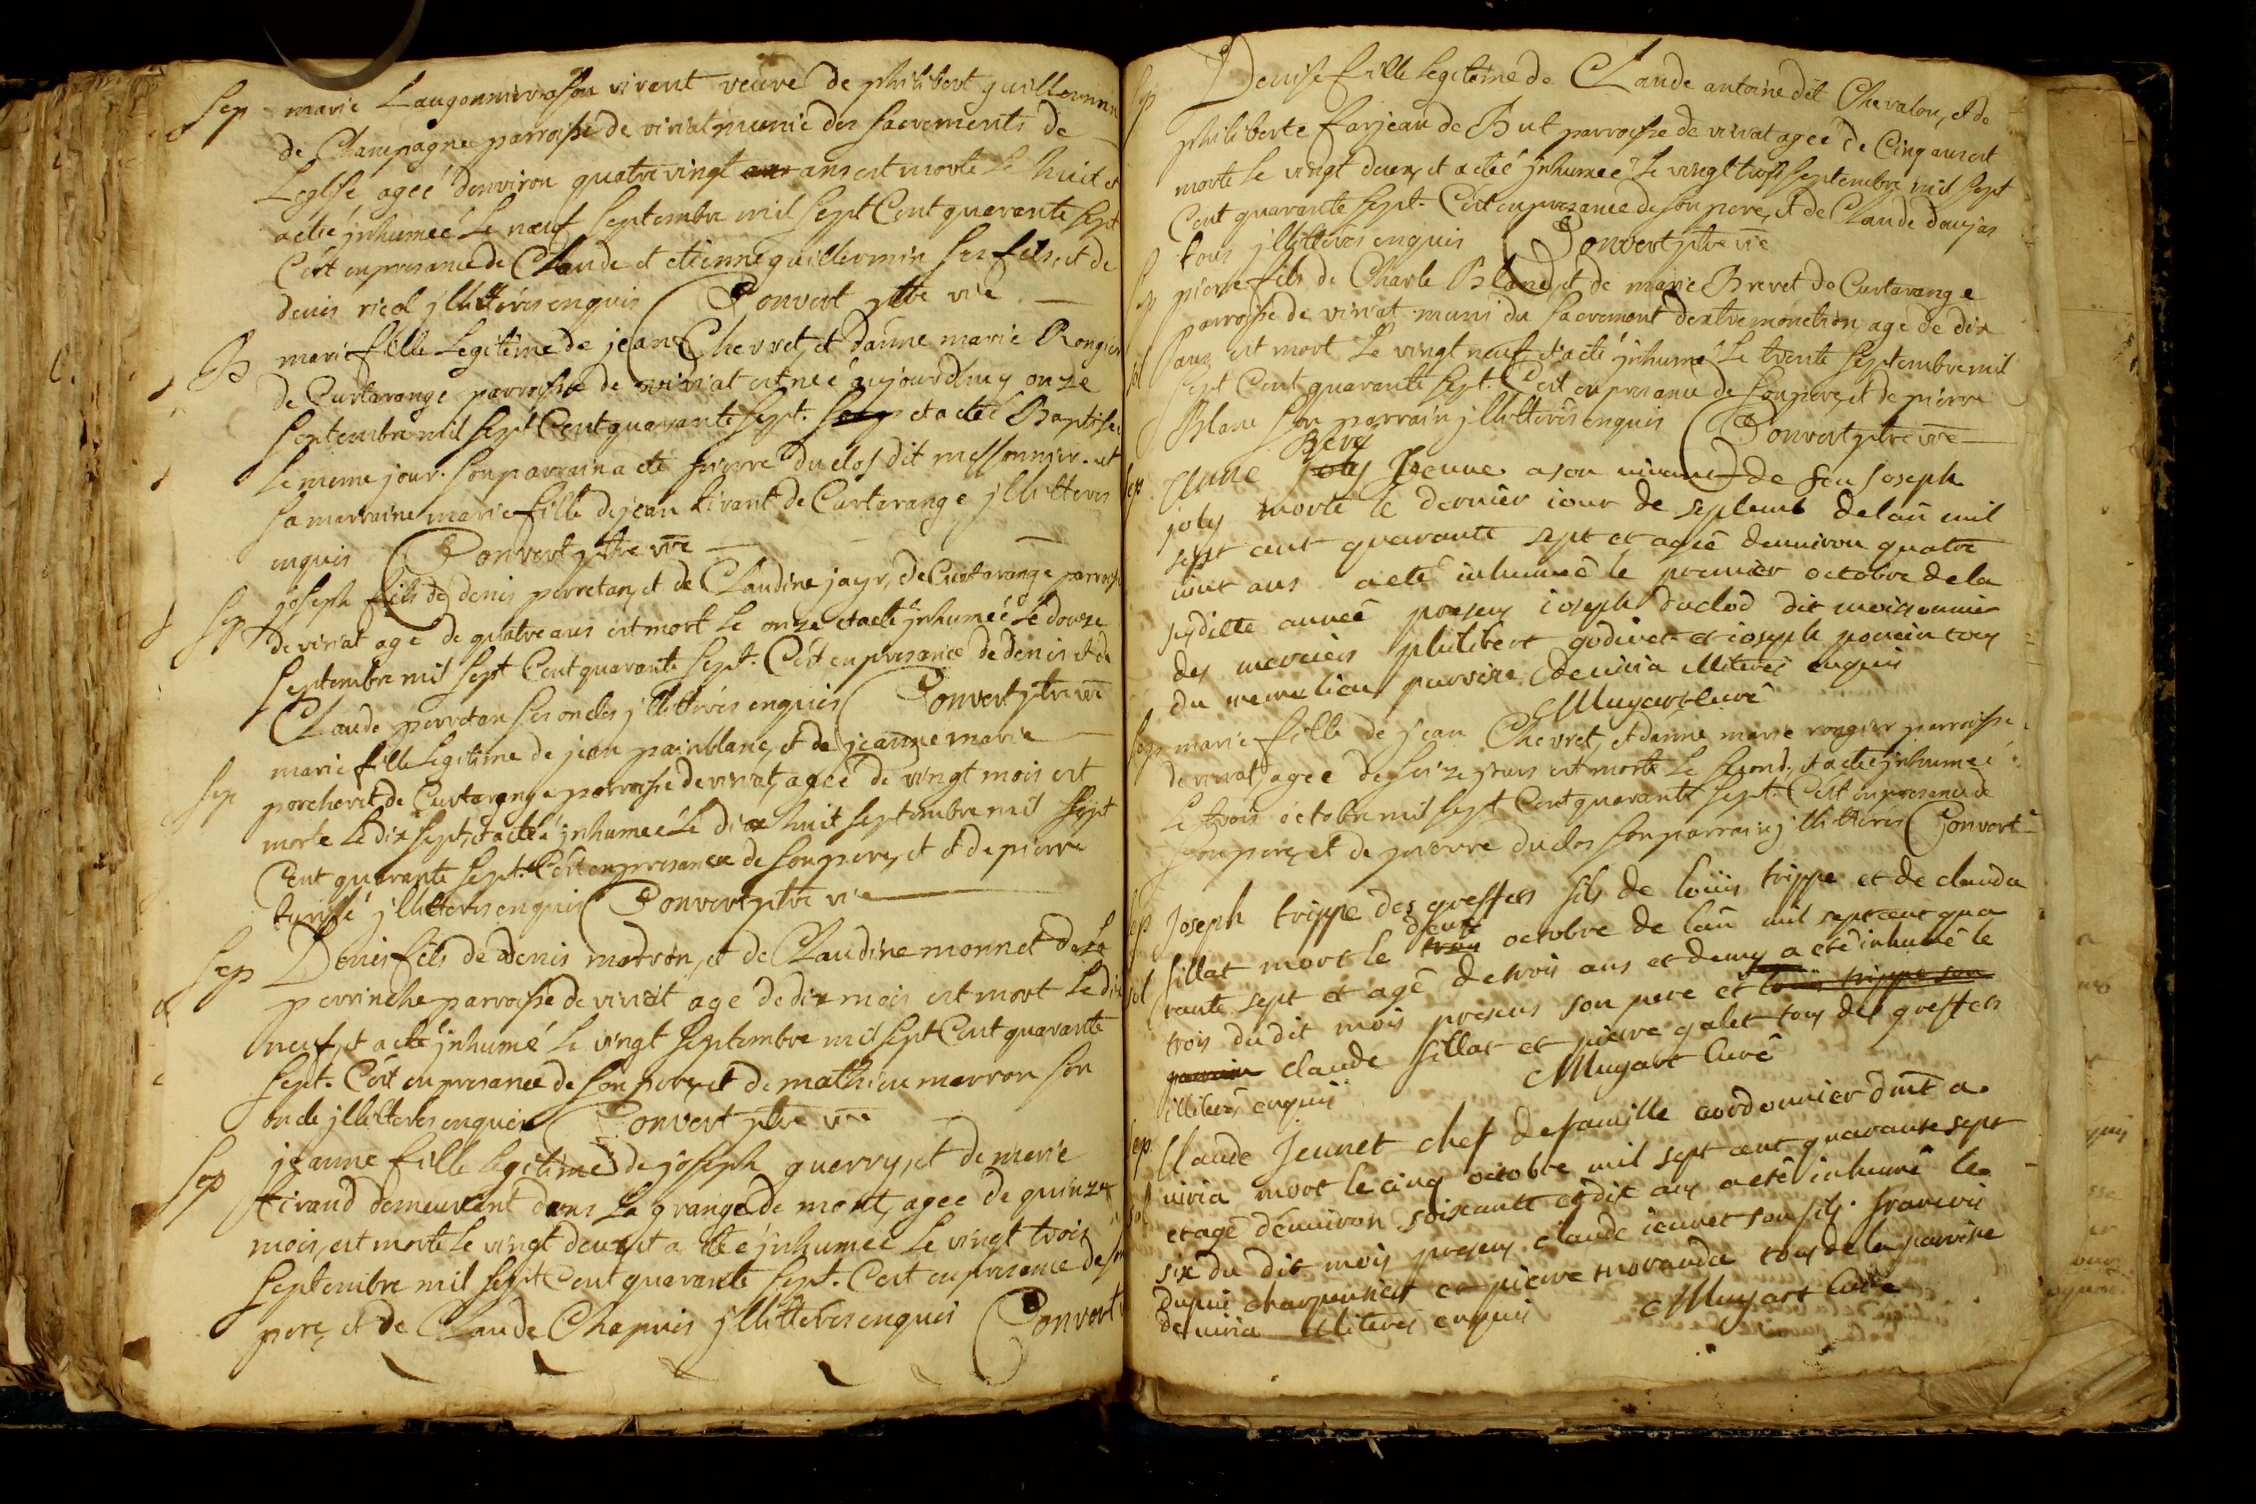 Sep marie Laugonnier a son vivant veuve de philibert guillermin
de Champagne parroisse de viriat munie des sacrements de
Leglise agée denviron quatre vingt ans est morte le huit et
a été jnhumée Le neuf septembre mil sept Cent quarante sept
C'est en presance de Claude et etienne guillermin ses fils, et de
denis ried jllitterés enquis Convert ptre vre
B marie fille Legitime de jean Chevret, et danne marie Rongier
de Curtarange parroisse de viriat est neé aujourdhuy onze
septembre mil sept Cent quarante sept. et a eté Baptisée
Le meme jour. son parrain a eté pierre duclos dit messonnier. et
sa marraine marie fille de jean tirant de Curtarange jllitterés
enquis Convert ptre vre
Sep joseph fils de denis perretan, et de Claudine jayr, de Curtarange parroisse
de viriat agé de quatre ans est mort le onze et a eté jnhumeé Le douze
septembre mil sept Cent quarante sept. C'est en presance de denis et de
Claude perretan ses oncles jllitterés enquis Convert ptre vre
Sep marie fille Legitime de jean painblanc, et de jeanne marie
porcheret de Curtarange parroisse de viriat, ageé de vingt mois est
morte Le dix sept, et a eté jnhumeé Le dix huit septembre mil sept
Cent quarante sept. C'est en presance de son pere, et de pierre
jllitterés enquis Convert ptre vre
Sep Denis fils de denis marron, et de Claudine monnet de La
perrinche parroisse de viriat agé de dix mois est mort Le dix
neuf, et a eté jnhumé Le vingt septembre mil sept Cent quarante
sept. C'est en presance de son pere, et de mathieu marron son
oncle jllitterés enquis Convert ptre vre
Sep jeanne fille legitime de joseph guerry, et de marie
tirand demeurant dans La grange de mont, agée de quinze
mois, est morte Le vingt deux, et a eté jnhumeé Le vingt trois
septembre mil sept Cent quarante sept. C'est en presance de son
pere, et de Claude Chapuis jllitterés enquis Convert
Sep Denise fille legitime de Claude antoine dit Chevalon, et de
philiberte farjean de But parroisse de viriat ageé de Cinq ans est
morte Le vingt deux, et a eté jnhumeé Le vingt trois septembre mil sept
Cent quarante sept. C'est en presance de son pere, et de Claude danjas
tous jllitterés enquis Convert ptre vre
Sep pierre fils de Charle Blanc, et de marie Brevet de Curtarange
parroisse de viriat muni du sacrement dextremonction agé de dix
sol ans est mort Le vingt neuf et a eté jnhumé Le trente septembre mil
sept Cent quarante sept. C'est en presance de son pere, et de pierre
Blanc son parrain jllitterés enquis Convert ptre vre
Sep. Anne joly veuve a son vivant de feu joseph
joly morte le dernier iour de septemb de lan mil
sept cent quarante sept et agée denuiron quatre
uint ans a eté inhumée le premier octobre de la
syditte année presens ioseph duclod dit moissonnier
des merciers philibert godinet et ioseph poncin tous
du meme lieu parroisse de uiria illiterés enquis
Muyart curé
Sep marie fille de jean Chevret, et danne marie rongier parroisse
de viriat, agee de seize jours est morte Le second, et a eté jnhumeé
Le trois octobre mil sept Cent quarante sept. C'est en presance de
son pere, et de pierre duclos son parrain jllitterés Convert
Sep joseph trippe des greffets fils de loüis trippe et de claudu
sillat mort le deux octobre de lan mil sept cent qua
sol rante sept et agé de trois ans et demy a eté inhumé le
trois du dit mois presens son pere et louis trippe son
parrain claude sillat et pierre galet tous des greffets
illiterés enquis Muyart Curé
Sep. Claude Jeunet chef de famille cordonnier dmt a
uiria mort le cinq octobre mil sept cent quarante sept
sol et agé denuiron soixante et dix ans a eté inhumé le
six du dit mois presens claude ieunet son fils francois
dupuis charpentier et pierre moranda tous de la parroisse
de uiria illiterés enquis Muyart Curé